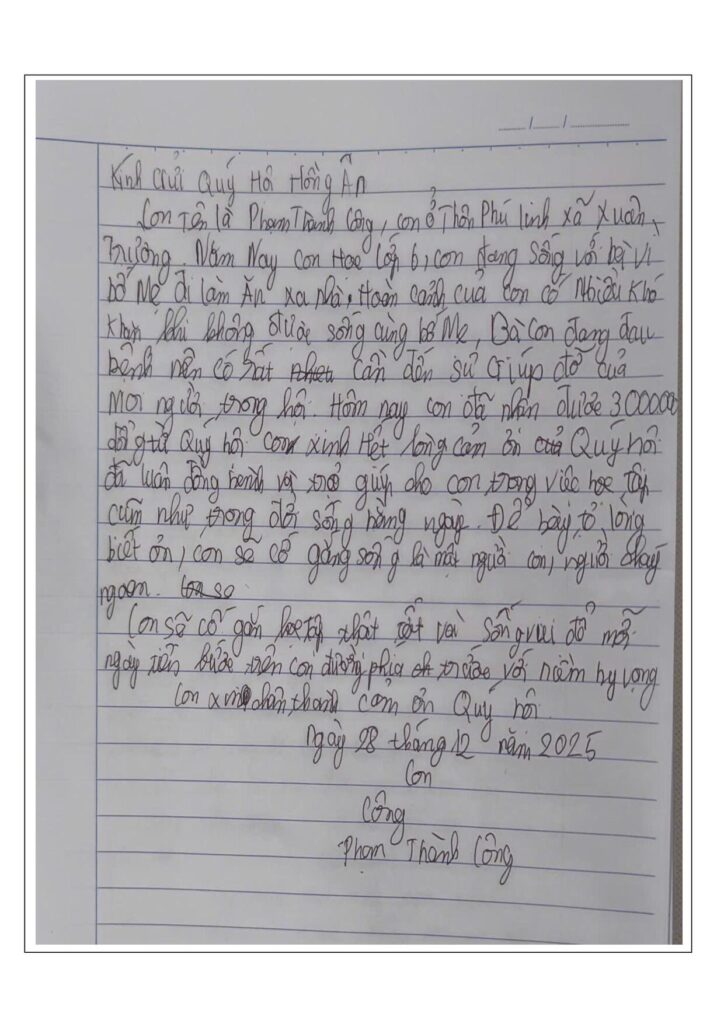 Kính Gửi Quý Hội Hồng Ân
Con Tên là Phạm Thành Công, con ở Thôn Phú linh xã Xuân
Trường. Năm Nay Con Học Lớp 6, con đang sống với bà vì
bố Mẹ đi làm Ăn xa nhà. Hoàn cảnh của con có Nhiều khó
khăn khi không được sống cùng bố Mẹ, Bà con đang đau
bệnh nên có rất cần đến sự Giúp đỡ của
mọi người trong hội. Hôm nay con đã nhận được 300000
đồng từ Quý hội con xinh Hết lòng cảm ơn Quý hội
đã luân đồng hành và trợ giúp cho con trong việc học tập
cũng như trong đời sống hằng ngày. Để bày tỏ lòng
biết ơn, con sẽ cố gắng sống là một người con, người cháy
ngoan.
Con sẽ cố gắn học tập thật tốt và sống vui để mỗi
ngày tiến bước trên con đường phía trước với niềm hy vọng
Con xin chân thành cảm ơn Quý hội.
Ngày 28 tháng 12 năm 2025
Con
Công
Phạm Thành Công